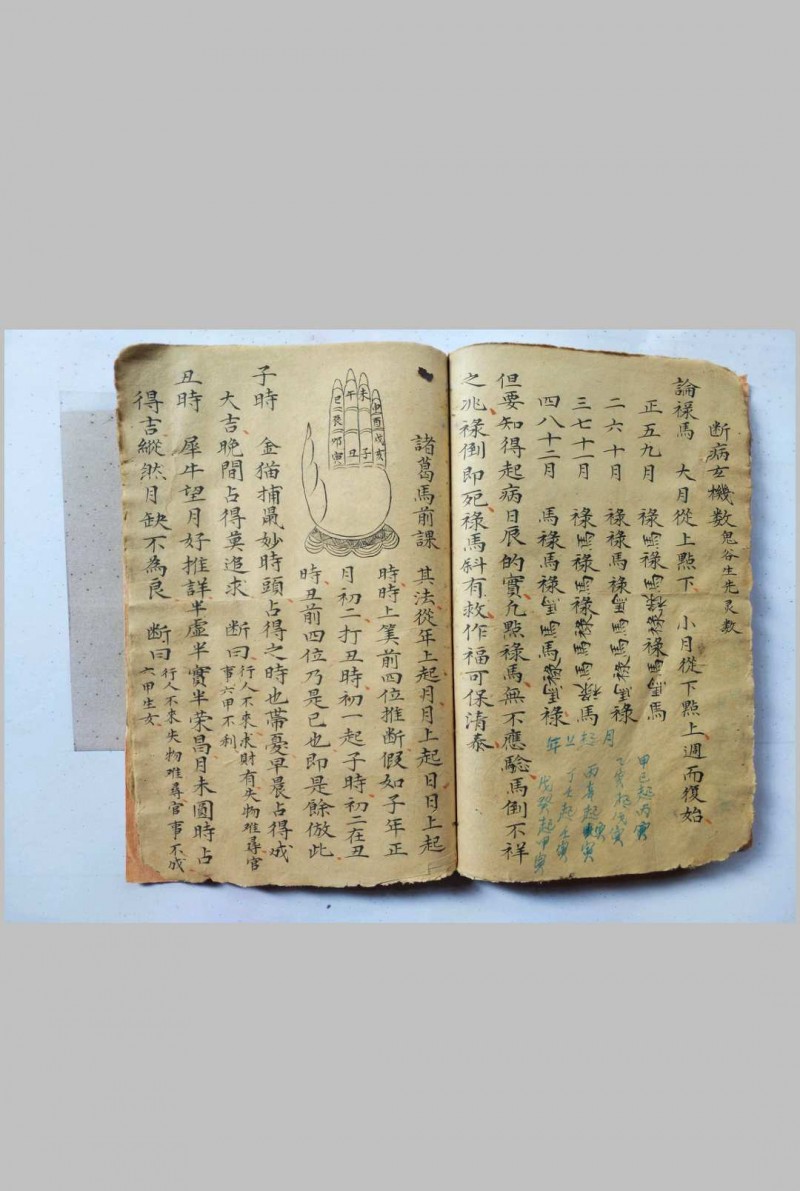 断病玄機数 鬼谷先生灵数
論禄馬 大月從上點下 小月從下點上週而復始
正五九月
二六十月
三七十一月
四八十二月
但要知得起病日辰的實九點禄馬無不應驗馬倒不祥
之兆禄倒即死禄馬斜有救作福可保清泰
年上起月
甲己起丙寅
乙庚起戊寅
丙辛起庚寅
丁壬起壬寅
戊癸起甲寅
諸葛馬前課 其法從年上起月月上起日日上起
時時上筭前四位推断假如子年正
月初二打丑時初一起子時初二在丑
時丑前四位乃是巳也即是餘倣此
午 未
巳 申
辰 酉
卯 戌
寅 丑 子 亥
子時 金猫捕鼠妙時頭占得之時也帶憂早晨占得成
大吉晚間占得莫追求 断曰 行人不來求財有失物难尋官
事六甲不利
丑時 犀牛望月好推詳半虚半實半荣昌月未圓時占
得吉縱然月缺不為良 断曰 行人不來失物难尋官事不成
六甲生女